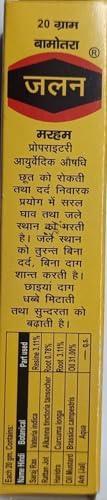 20 ग्राम
बामोतरा
®
जलन
मरहम
प्रोपराइटरी
आयुर्वेदिक औषधि
छूत को रोकती
तथा दर्द निवारक
प्रयोग में सरल
घाव तथा जले
स्थान को भरती
है। जले स्थान
को तुरन्त बिना
दर्द, बिना दाग
शान्त करती है।
छाइयां दाग
धब्बे मिटाती
तथा सुन्दरता को
बढ़ाती है।
Each 20 gm. Contains:
Name Hindi Botanical Part used
Saraj Ras Vateria indica Resine 3.11%
Rattan Jot Alkanna tinctoria tanscher Root 0.78%
Haridra Curcuma longa Root 3.11%
Oil Mustard Brassica campestris Oil 31.09%
Ark (Jal) Aqua q.s.